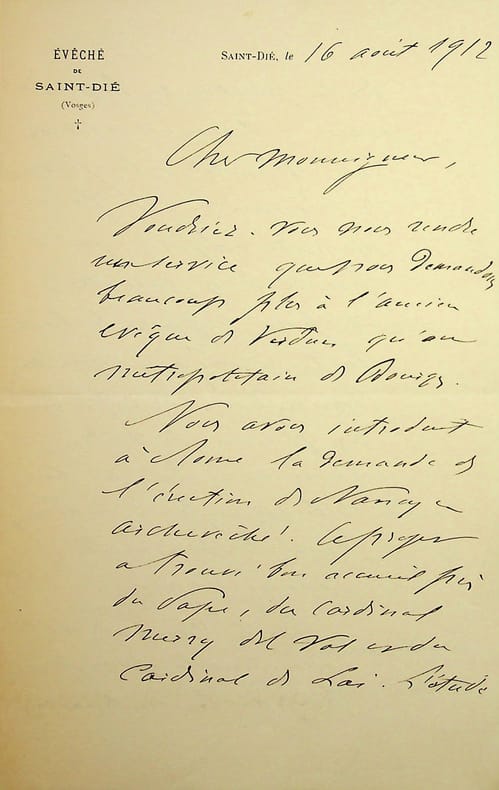 ÉVÊCHÉ
DE
SAINT-DIÉ
(Vosges)
SAINT-DIÉ, le 16 août 1912
Cher Monseigneur,
Voudriez-vous nous rendre
un service que nous demandons
beaucoup plus à l'ancien
évêque de Verdun qu'au
métropolitain de Bourges.
Nous avons introduit
à Rome la demande de
l'érection de Nancy en
archevêché. Ce projet
a trouvé bon accueil près
du Pape, du Cardinal
Merry del Val et du
Cardinal de Laï. L'étude